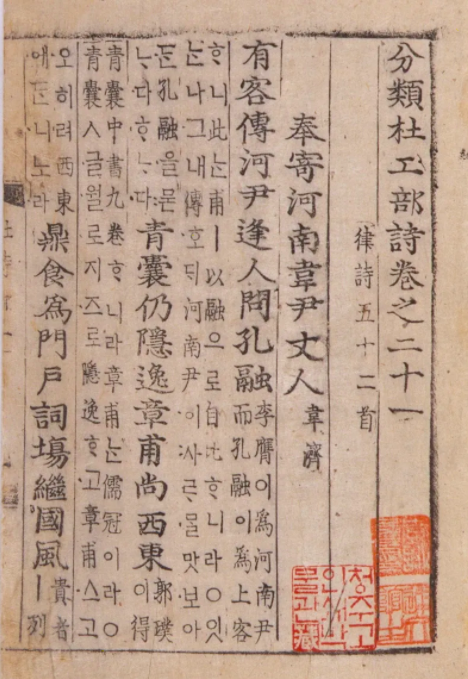 分類杜工部詩卷之二十一
律詩五十二首
奉寄河南韋尹丈人 韋濟
有客傳河尹逢人問孔融 李膺이爲河南尹
而孔融이爲上客
ᄒᆞ니此ᄂᆞᆫ甫ㅣ以融으로自比ᄒᆞ니라○잇
ᄂᆞᆫ나그내傳호ᄃᆡ河南尹이사ᄅᆞᄆᆞᆯ맛보아
ᄃᆞᆫ孔融을묻
ᄂᆞ다ᄒᆞᄂᆞ다
青囊仍隱逸章甫尚西東 郭璞
이得
青囊中書九卷ᄒᆞ니라章甫ᄂᆞᆫ儒冠이라○
青囊ㅅ글월로지즈로隱逸ᄒᆞ고章甫스고
오히려西東
애ᄃᆞᆫ니노라
鼎食爲門戶詞場繼國風 貴者
ㅣ列
청주고
인쇄박
물관藏